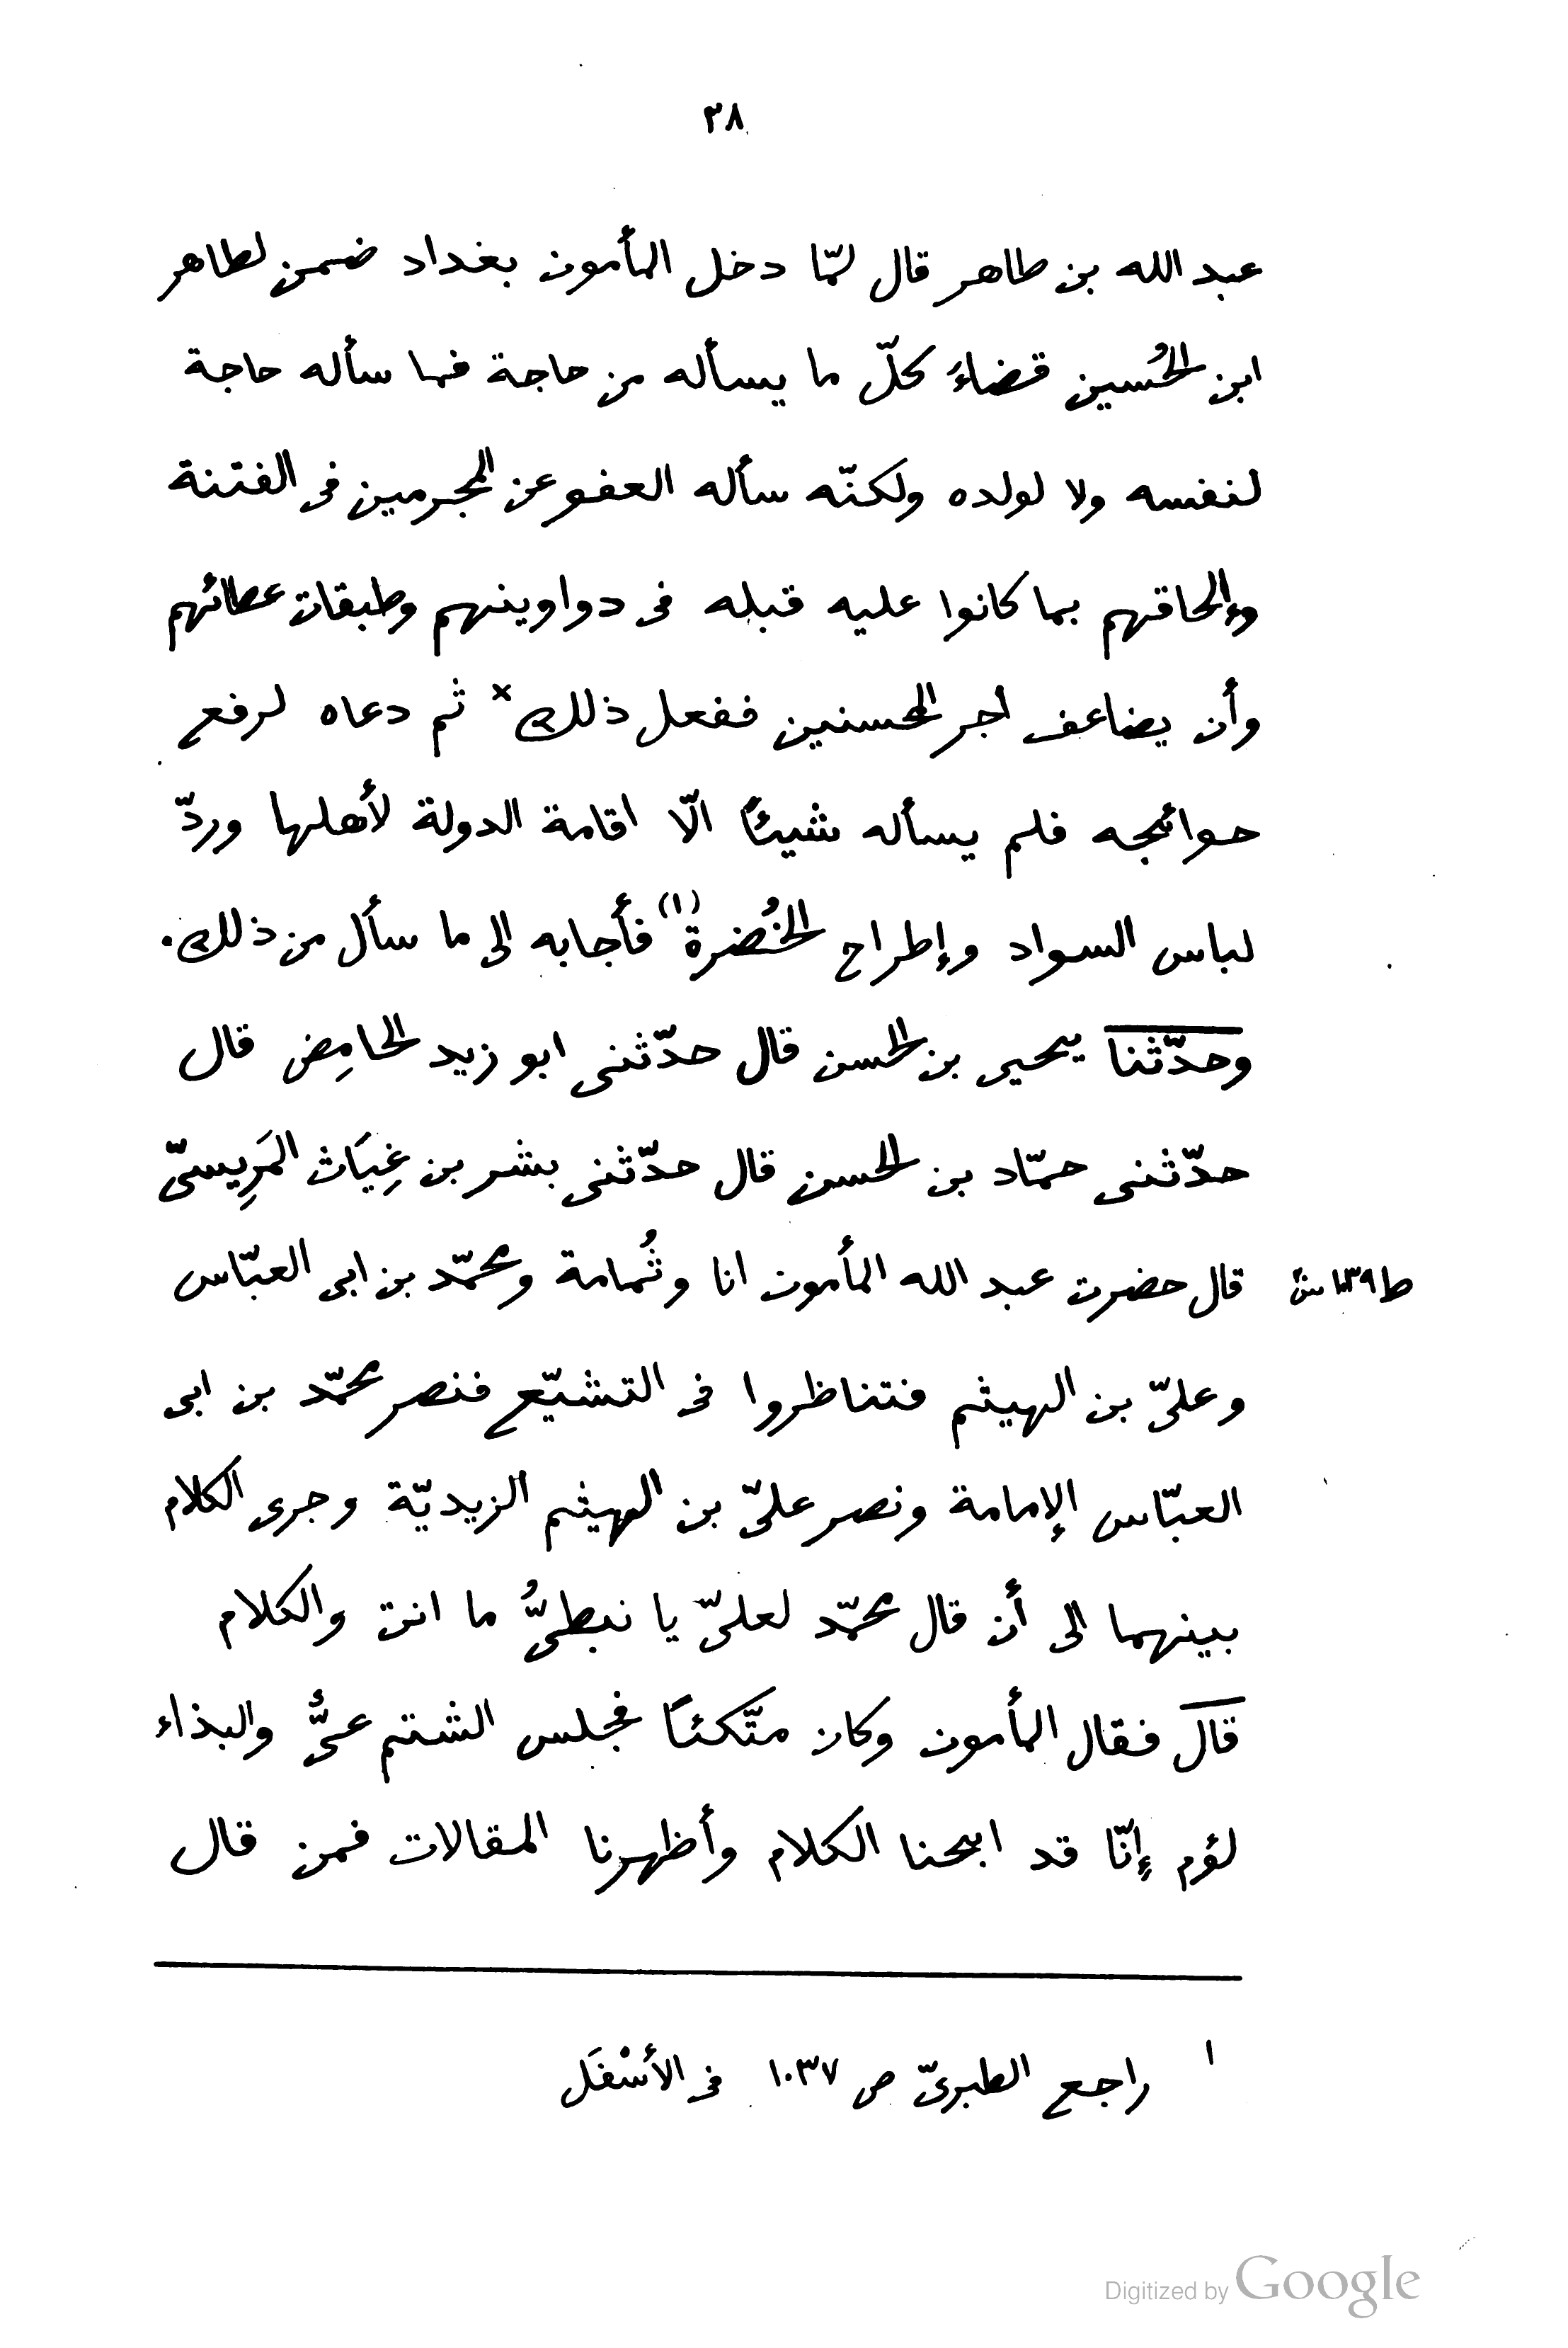 ٣٨
عبد الله بن طاهر قال لمّا دخل المأمون بغداد ضمن لطاهر
ابن الحُسين قضاءَ كلّ ما يسأله من حاجة فما سأله حاجة
لنفسه ولا لولده ولكنّه سأله العفو عن المجرمين فى الفتنة
وإلحاقهم بما كانوا عليه قبله فى دواوينهم وطبقات عطائهم
وأن يضاعف اجر المحسنين ففعل ذلك × ثم دعاه لرفع
حوائجه فلم يسأله شيئًا الّا اقامة الدولة لأهلها وردّ
لباس السواد وإطراح الخُضرة (١) فأجابه الى ما سأل من ذلك.
وحدّثنا يحيى بن الحسن قال حدّثنى ابو زيد الحامِض قال
حدّثنى حمّاد بن الحسن قال حدّثنى بشر بن غِيَاث المَرِيسىّ
قال حضرت عبد الله المأمون انا وثُمامة ومحمّد بن ابى العبّاس
ط ١٠٣٩ س
وعلىّ بن الهيثم فتناظروا فى التشيّع فنصر محمّد بن ابى
العبّاس الإمامة ونصر علىّ بن الهيثم الزيديّة وجرى الكلام
بينهما الى أن قال محمّد لعلىّ يا نبطىُّ ما انت والكلام
قال فقال المأمون وكان متّكئًا فجلس الشتم عىٌّ والبذاء
لؤم إنّا قد ابحنا الكلام وأظهرنا المقالات فمن قال
١ راجع الطبرىّ ص ١٠٣٧ فى الأسْفَل
Digitized by Google